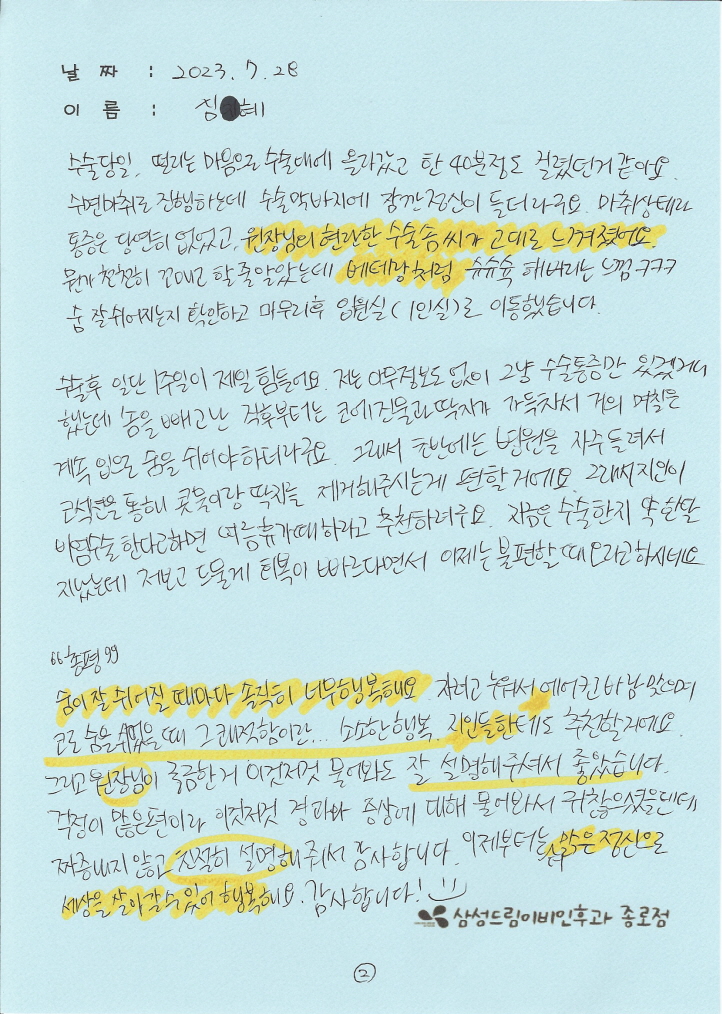 날 짜 : 2023. 7. 28
이 름 : 김 혜
수술당일, 떨리는 마음으로 수술대에 올라갔고 한 40분정도 걸렸던거 같아요.
수면마취로 진행하는데 수술막바지에 잠깐 정신이 들더라구요. 마취상태라
통증은 당연히 없었고, 원장님의 현란한 수술솜씨가 그대로 느껴졌어요.
뭔가 천천히 꼬매고 할줄알았는데 베테랑처럼 슈슈슉 해버리는 느낌 ㅋㅋㅋ
숨 잘쉬어지는지 확인하고 마무리후 입원실(1인실)로 이동했습니다.
수술후 일단 1주일이 제일 힘들어요. 저는 아무정보도 없이 그냥 수술통증만 있겠거니
했는데 솜을 빼고 난 직후부터는 코에 진물과 딱지가 가득차서 거의 며칠은
계속 입으로 숨을 쉬어야 하더라구요. 그래서 초반에는 병원을 자주 들려서
코석션을 통해 콧물이랑 딱지를 제거해주시는게 편할거에요. 그래서 지인이
비염수술 한다고하면 여름휴가때 하라고 추천하려구요. 지금은 수술한지 약 한달
지났는데 저보고 드물게 회복이 빠르다면서 이제는 불편할 때 오라고 하시네요
“총평”
숨이 잘 쉬어질 때마다 솔직히 너무행복해요 자려고 누워서 에어컨 바람 맞으며
코로 숨을 쉬었을때 그 쾌적함이란... 소소한 행복. 지인들한테도 추천할거에요.
그리고 원장님이 궁금한거 이것저것 물어봐도 잘 설명해주셔서 좋았습니다.
걱정이 많은편이라 이것저것 경과와 증상에 대해 물어봐서 귀찮으셨을텐데
짜증내지 않고 친절히 설명해 줘서 감사합니다. 이제부터는 맑은 정신으로
세상을 살아갈 수 있어 행복해요. 감사합니다!
삼성드림이비인후과 종로점
②